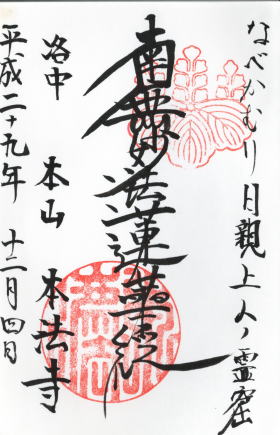 なべかむり日親上人ノ霊窟
南無妙法蓮華経
洛中 本山 本法寺
平成二十九年 十二月四日